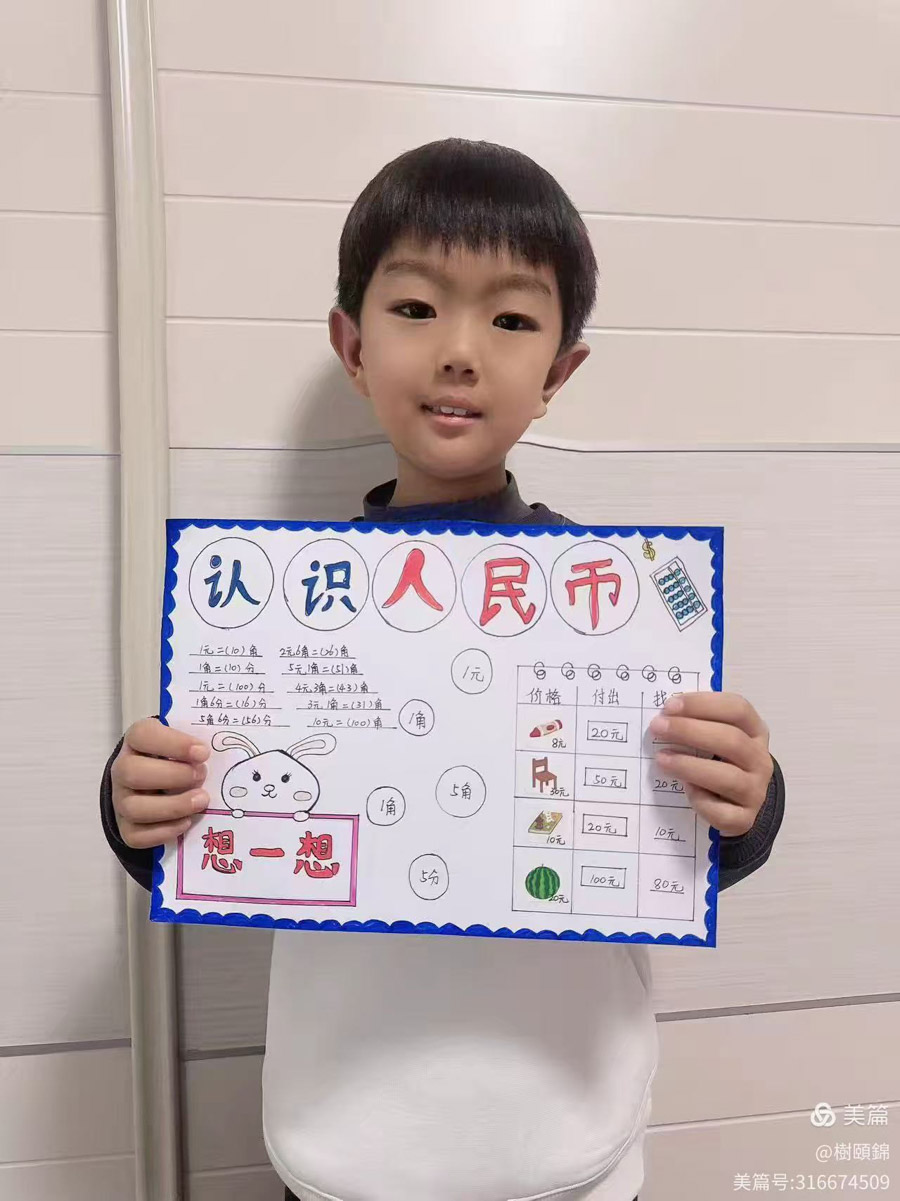 认识人民币
$
1元=(10)角 2元6角=(26)角
1角=(10)分 5元1角=(51)角
1元=(100)分 4元3角=(43)角
1角6分=(16)分 3元1角=(31)角
5角6分=(56)分 10元=(100)角
1元
1角
1角
5角
5分
想一想
价格 付出 找
8元 20元
30元 50元 20元
10元 20元 10元
20元 100元 80元
美篇
@樹頤錦
美篇号:316674509